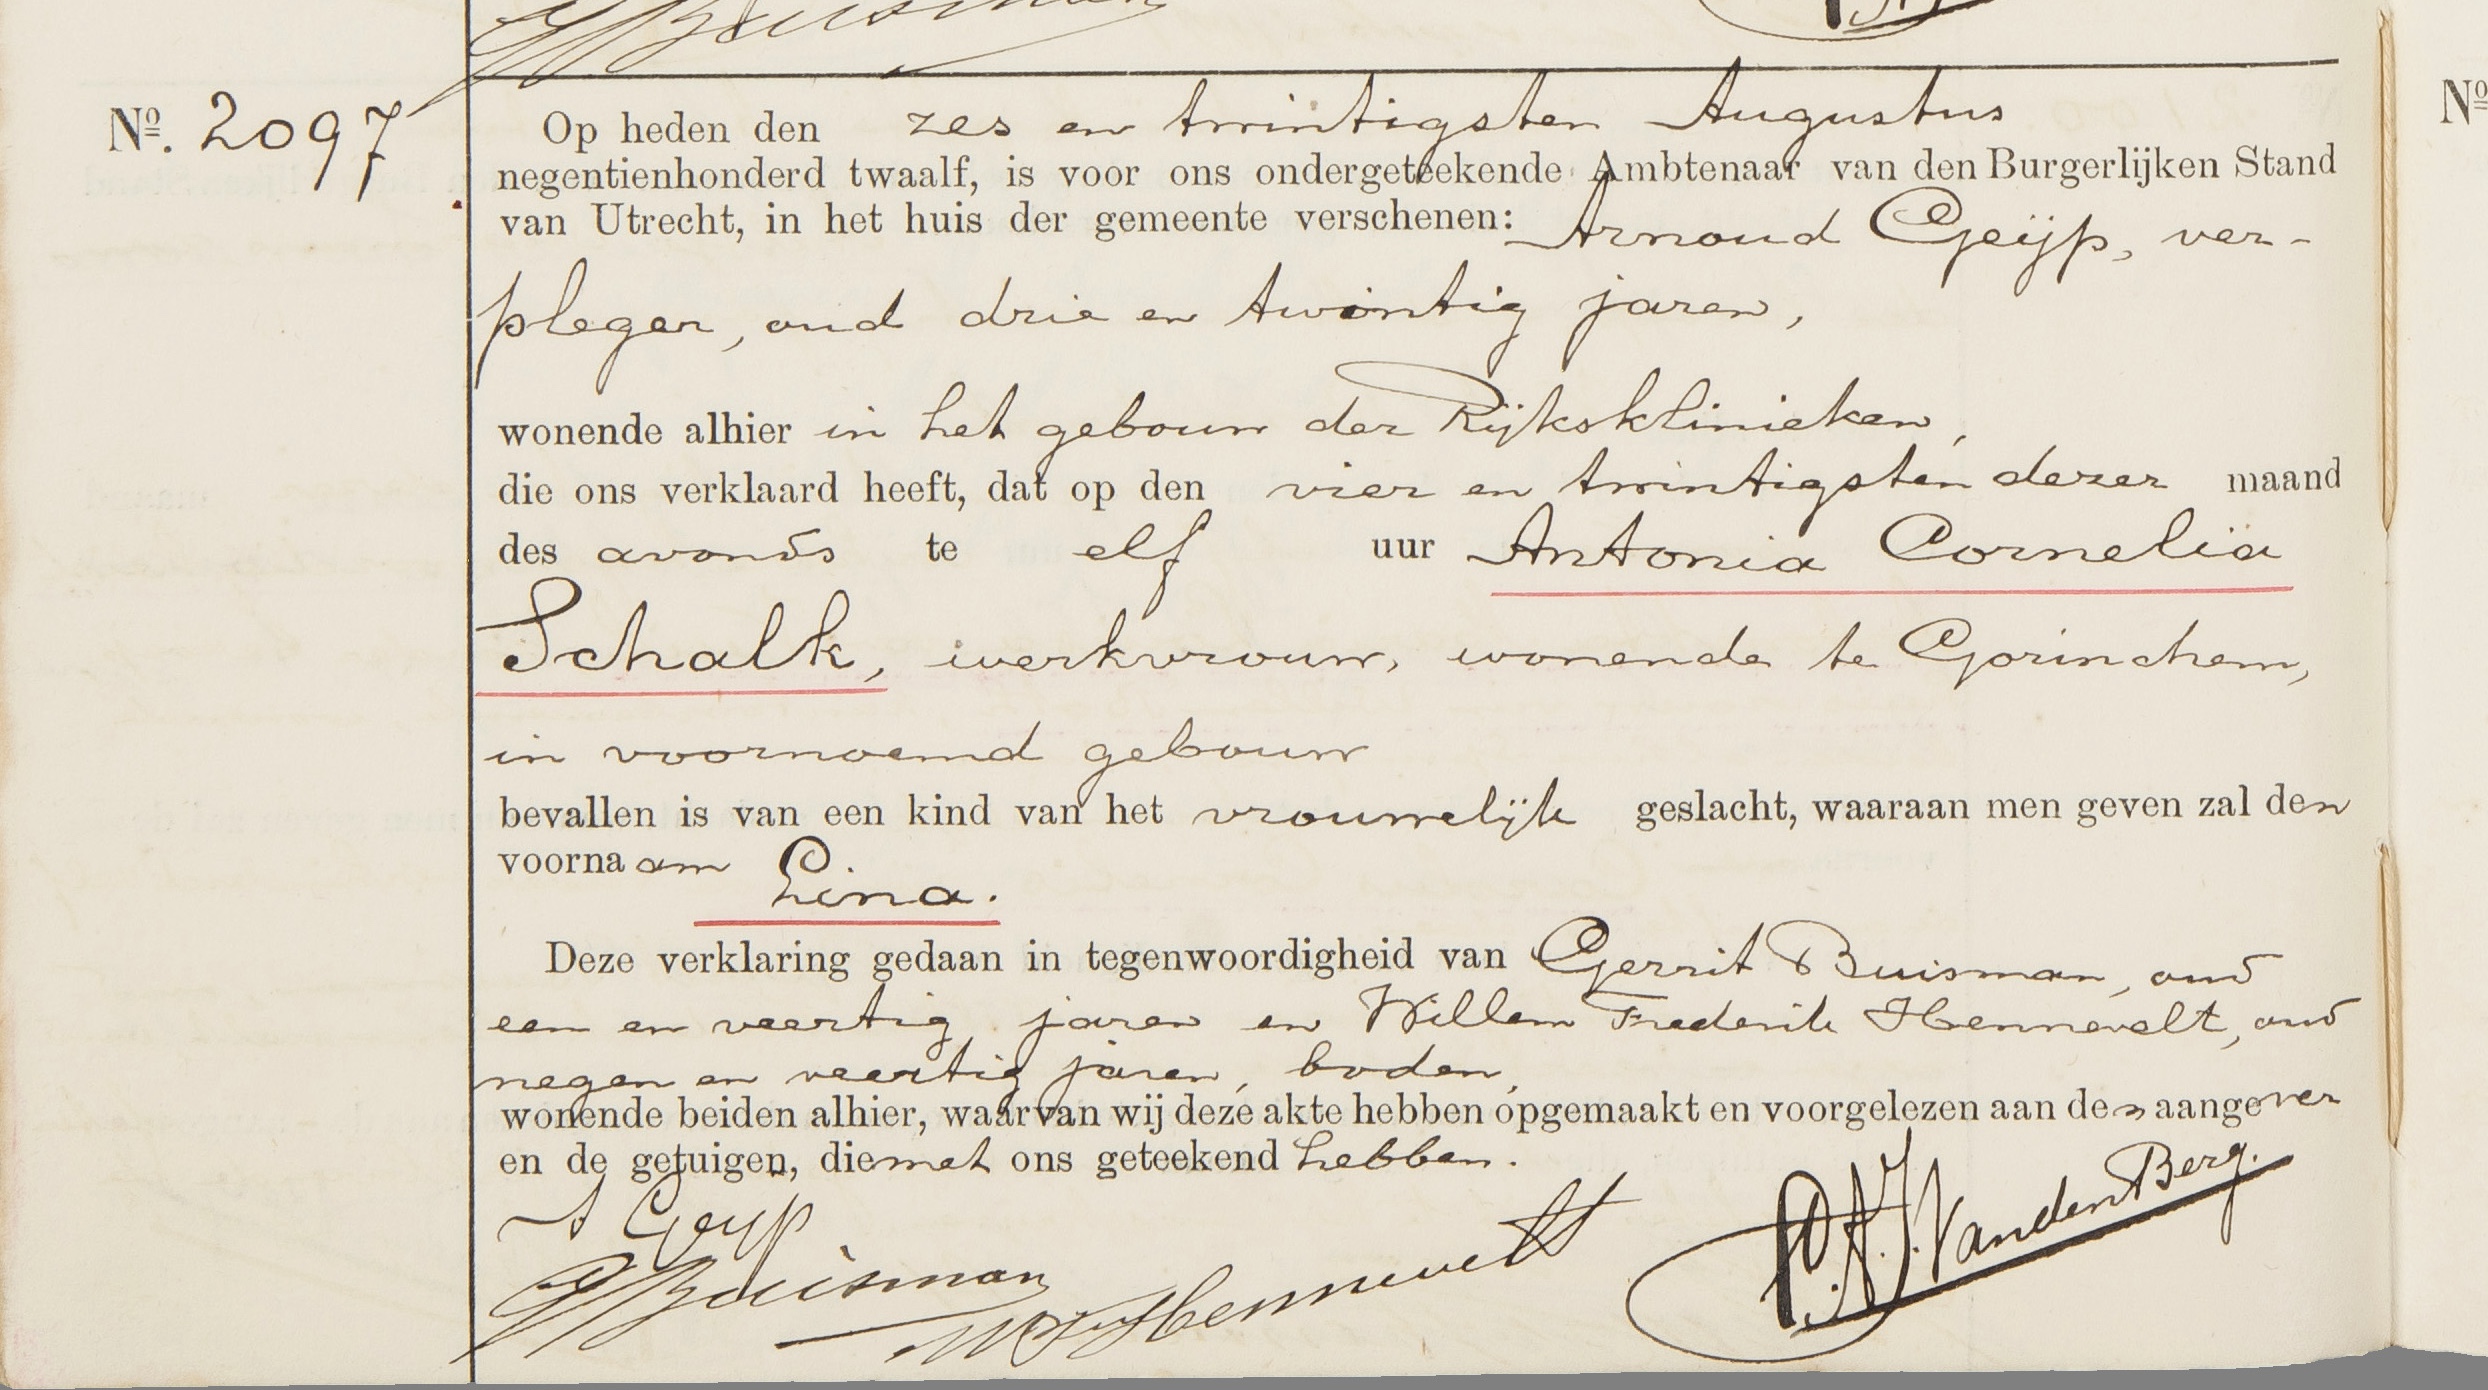 No. 2097
Op heden den zes en twintigsten Augustus
negentienhonderd twaalf, is voor ons ondergeteekende Ambtenaar van den Burgerlijken Stand
van Utrecht, in het huis der gemeente verschenen: Arnoud Geijp, ver-
pleger, oud drie en twintig jaren,
wonende alhier in het gebouw der Rijksklinieken,
die ons verklaard heeft, dat op den vier en twintigsten dezer maand
des avonds te elf uur Antonia Cornelia
Schalk, werkvrouw, wonende te Gorinchem,
in voornoemd gebouw
bevallen is van een kind van het vrouwelijk geslacht, waaraan men geven zal den
voornaam Lina.
Deze verklaring gedaan in tegenwoordigheid van Gerrit Buisman, oud
een en veertig jaren en Willem Frederik Hennevelt, oud
negen en veertig jaren, boden,
wonende beiden alhier, waarvan wij deze akte hebben opgemaakt en voorgelezen aan den aangever
en de getuigen, die met ons geteekend hebben.
A Geijp
G Buisman
WF Hennevelt
P.A.J. Van den Berg.
No